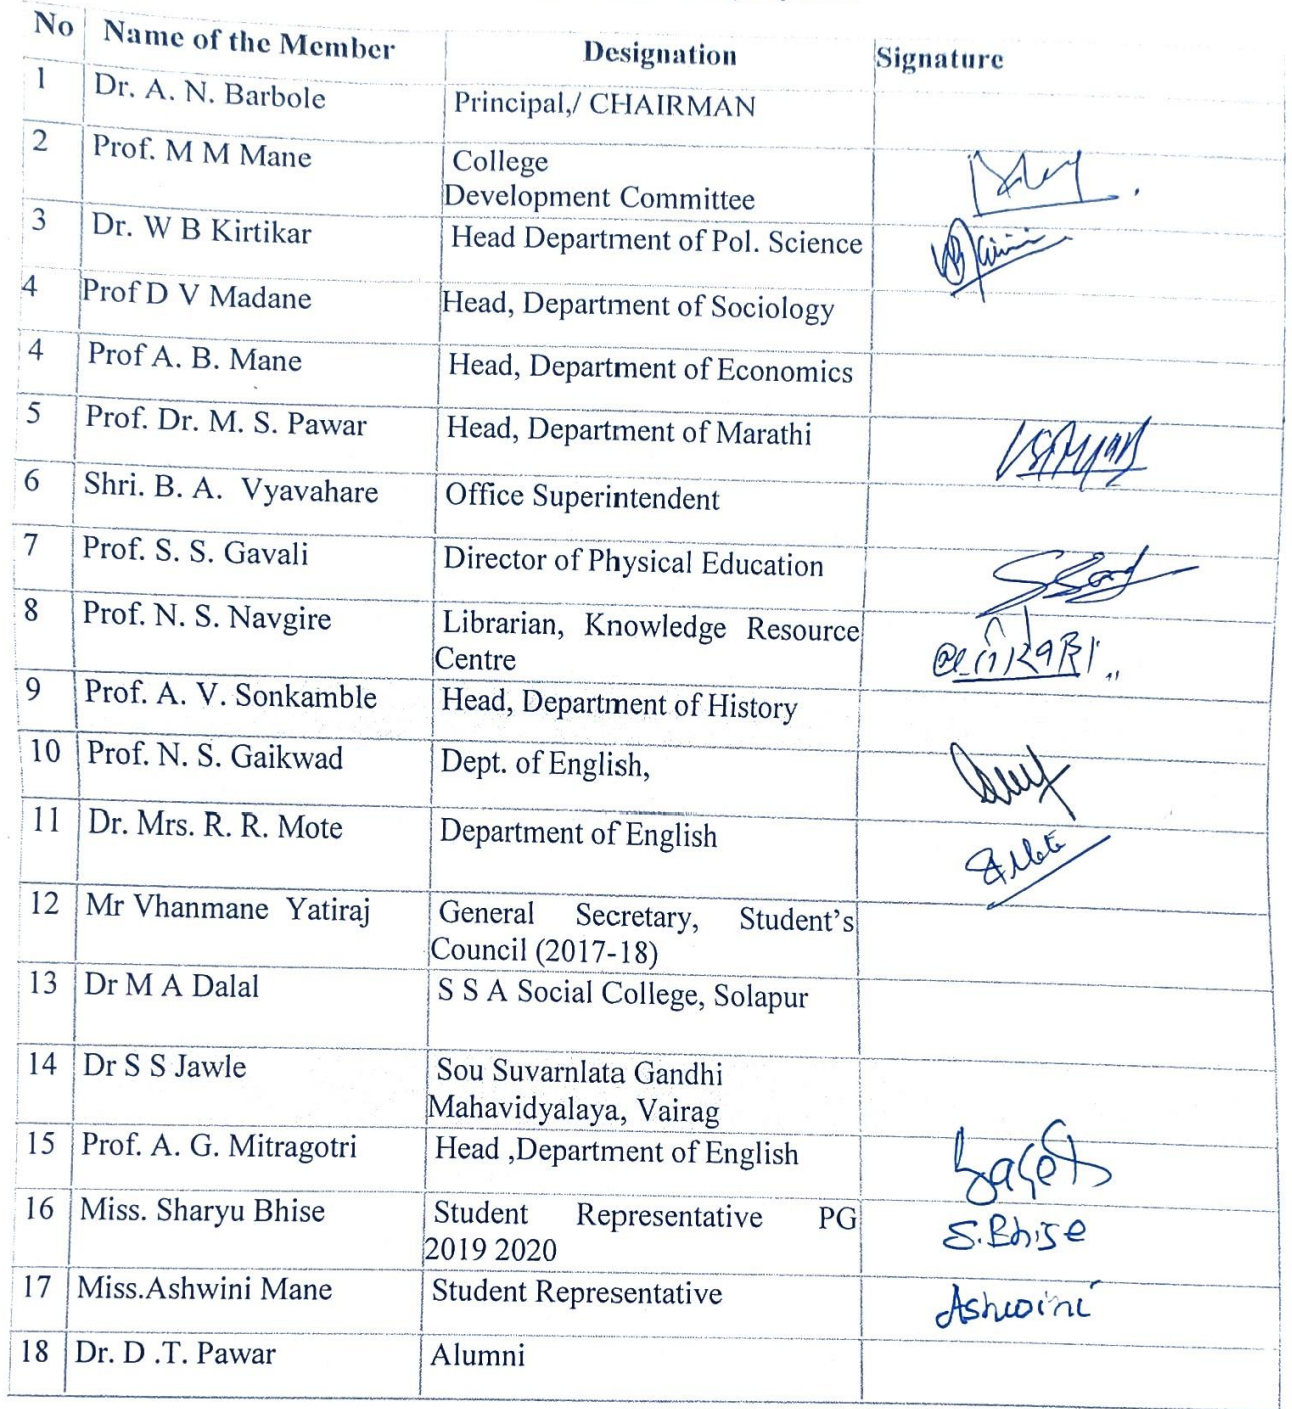 No Name of the Member Designation Signature
1 Dr. A. N. Barbole Principal,/ CHAIRMAN
2 Prof. M M Mane College
Development Committee
3 Dr. W B Kirtikar Head Department of Pol. Science
4 Prof D V Madane Head, Department of Sociology
4 Prof A. B. Mane Head, Department of Economics
5 Prof. Dr. M. S. Pawar Head, Department of Marathi
6 Shri. B. A. Vyavahare Office Superintendent
7 Prof. S. S. Gavali Director of Physical Education
8 Prof. N. S. Navgire Librarian, Knowledge Resource
Centre
9 Prof. A. V. Sonkamble Head, Department of History
10 Prof. N. S. Gaikwad Dept. of English,
11 Dr. Mrs. R. R. Mote Department of English
12 Mr Vhanmane Yatiraj General Secretary, Student's
Council (2017-18)
13 Dr M A Dalal S S A Social College, Solapur
14 Dr S S Jawle Sou Suvarnlata Gandhi
Mahavidyalaya, Vairag
15 Prof. A. G. Mitragotri Head ,Department of English
16 Miss. Sharyu Bhise Student Representative PG S.Bhise
2019 2020
17 Miss.Ashwini Mane Student Representative Ashwini
18 Dr. D .T. Pawar Alumni